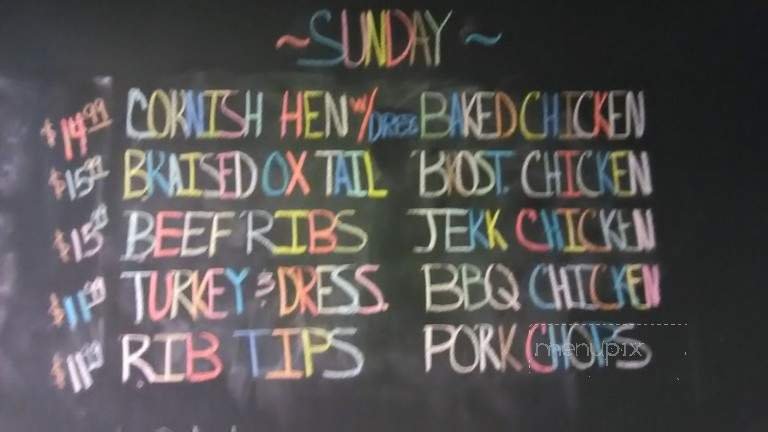 ~SUNDAY~
$14.99 CORNISH HEN W/DRES BAKED CHICKEN
$15.99 BRAISED OX TAIL BKOST. CHICKEN
$15.99 BEEF RIBS JERK CHICKEN
$11.99 TURKEY & DRESS. BBQ CHICKEN
$11.99 RIB TIPS PORK CHOPS
menupix